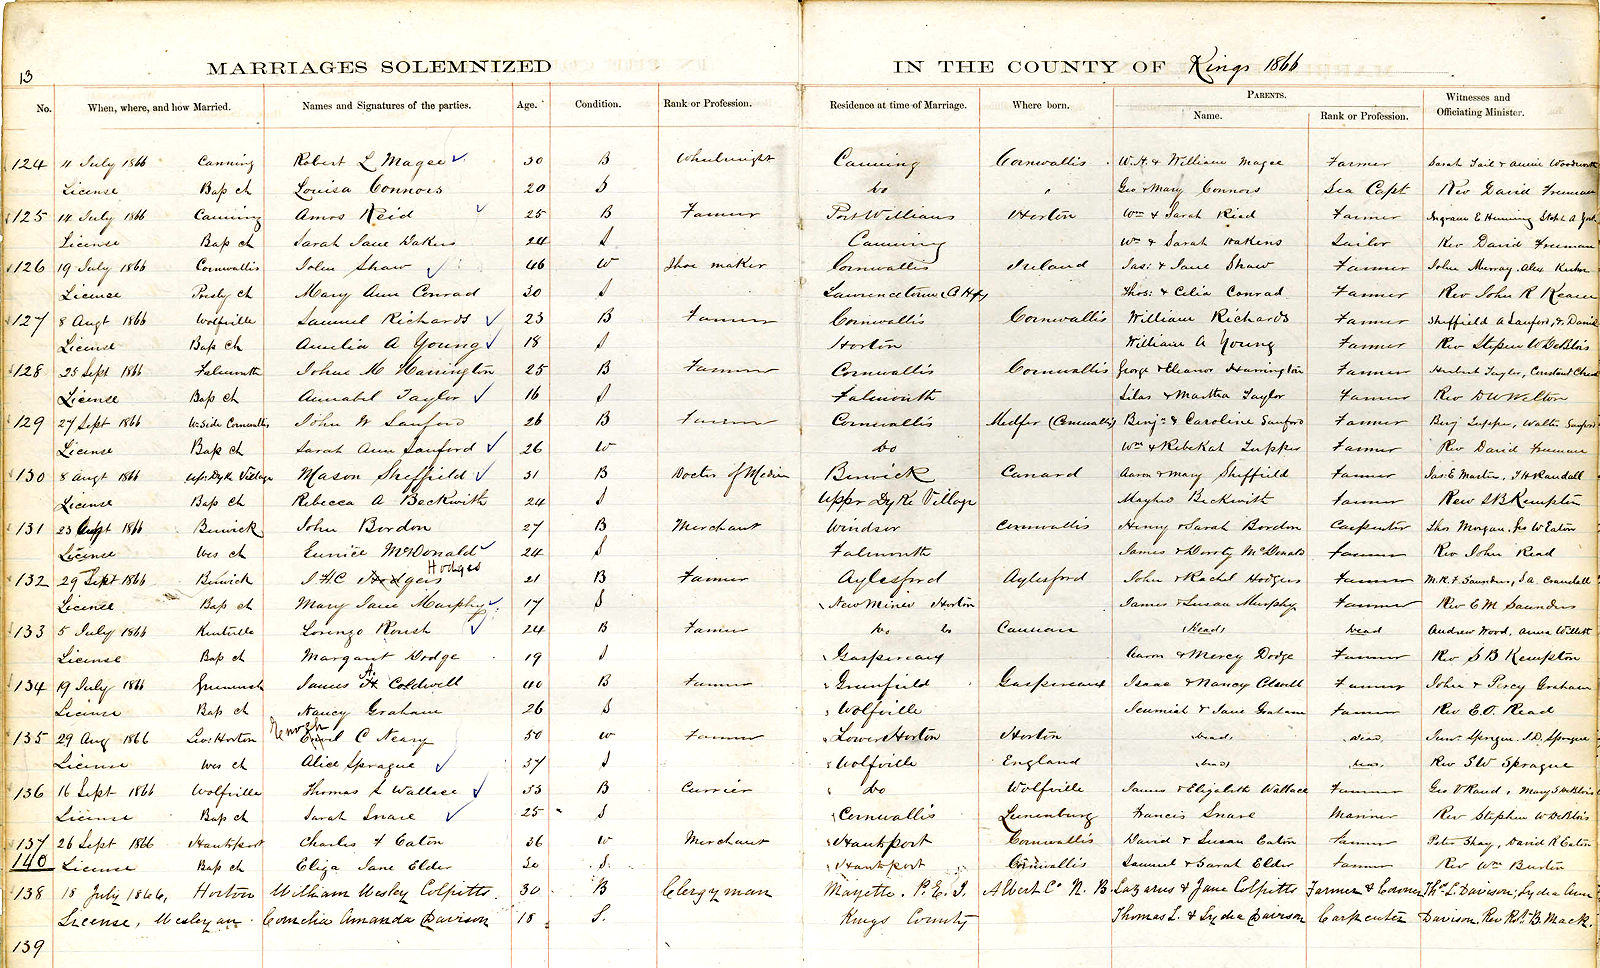 13
MARRIAGES SOLEMNIZED IN THE COUNTY OF Kings 1866
No. When, where, and how Married. Names and Signatures of the parties. Age. Condition. Rank or Profession. Residence at time of Marriage. Where born. PARENTS. Witnesses and Officiating Minister.
Name. Rank or Profession.
124 11 July 1866 Canning Robert L Magee 30 B Wheelwright Canning Cornwallis W. H. & William Magee Farmer Sarah & Annie Woodworth
License Bap ch Louisa Connors 20 S Do " Geo & Mary Connors Sea Capt Rev David Freeman
125 14 July 1866 Canning Amos Reid 25 B Farmer Port Williams Horton Wm & Sarah Reid Farmer
License Bap ch Sarah Jane Dakens 24 S Canning Wm & Sarah Dakens Sailor Rev David Freeman
126 19 July 1866 Cornwallis John Shaw 46 W Shoe maker Cornwallis Ireland Jas: & Jane Shaw Farmer John Murray, Alex
License Presby ch Mary Ann Conrad 30 S Lawrencetown Thos: & Celia Conrad Farmer Rev John R
127 8 Augt 1866 Wolfville Samuel Richards 23 B Farmer Cornwallis Cornwallis William Richards Farmer Sheffield A Sanford,
License Bap ch Amelia A Young 18 S Horton William A Young Farmer Rev Stephen W DeBlois
128 25 Sept 1866 Falmouth John M Harrington 25 B Farmer Cornwallis Cornwallis George & Eleanor Harrington Farmer Herbert Taylor, Constant
License Bap ch Annabel Taylor 16 S Falmouth Silas & Martha Taylor Farmer Rev D W Welton
129 27 Sept 1866 W. Side Cornwallis John W Sanford 26 B Farmer Cornwallis (Cornwallis) Benjn & Caroline Sanford Farmer Benj Tupper, Walter Sanford
License Bap ch Sarah Ann Sanford 26 W Do Wm & Rebekah Tupper Farmer Rev David Freeman
130 8 Augt 1866 Upr Dyke Village Mason Sheffield 31 B Doctor of Medicin Berwick Canard Aaron & Mary Sheffield Farmer Jas: E Masters, Randall
License Bap ch Rebecca A Beckwith 24 S Upper Dyke Village Mayhew Beckwith Farmer Rev S B Kempton
131 23 Augt 1866 Berwick John Bordon 27 B Merchant Windsor Cornwallis Henry & Sarah Bordon Carpenter Thos Morgan, Geo W Eaton
License Wes ch Eunice McDonald 24 S Falmouth James & Doroty McDonald Farmer Rev John Read
Hodges
132 29 Sept 1866 Berwick J H C Hodges 21 B Farmer Aylesford Aylesford John & Rachel Hodgers Farmer M. K. F. Saunders, J. A. Crandall
License Bap ch Mary Jane Murphy 17 S New Mines Horton James & Susan Murphy Farmer Rev E M Saunders
133 5 July 1866 Kentville Lorenzo 24 B Farmer Do Do Canaan Dead Dead Andrew Wood, Anna Willett
License Bap ch Margaret Dodge 19 S Gaspereaux Aaron & Mercy Dodge Farmer Rev S B Kempton
A.
134 19 July 1866 Greenwich James H Coldwell 40 B Farmer Greenfield Gaspereaux Isaac & Nancy Farmer John & Percy Graham
License Bap ch Nancy Graham 26 S Wolfville Jeremiah & Jane Graham Farmer Rev E. O. Read
Enoch
135 29 Aug 1866 Low: Horton C Neary 50 W Farmer Lower Horton Horton Dead Dead Sprague, S.D. Sprague
License Wes ch Alice Sprague 37 S Wolfville England Dead Dead Rev S W Sprague
136 16 Sept 1866 Wolfville Thomas L Wallace 33 B Currier Do Wolfville James & Elizabeth Wallace Farmer Geo V Rand, Mary S DeBlois
License Bap ch Sarah Snare 25 S Cornwallis Lunenburg Francis Snare Mariner Rev Stephen W DeBlois
137 26 Sept 1866 Hantsport Charles Eaton 36 W Merchant Hantsport Cornwallis David & Susan Eaton Farmer Peter Shay, David R Eaton
140 License Bap ch Eliza Jane Elder 30 S. Hantsport Cornwallis Samuel & Sarah Elder Farmer Rev Wm Burton
138 18 July 1866, Horton William Wesley Colpitts. 30 B Clergyman P.E.I. Albert Co N. B Lazarus & Jane Colpitts Farmer & Thos L. Davison, Lydia Ann
License, Wesleyan Cornelia Amanda Davison 18 S. Kings County Thomas L. & Lydia Davison Carpenter Davison, Rev Robt B. Mack.
139